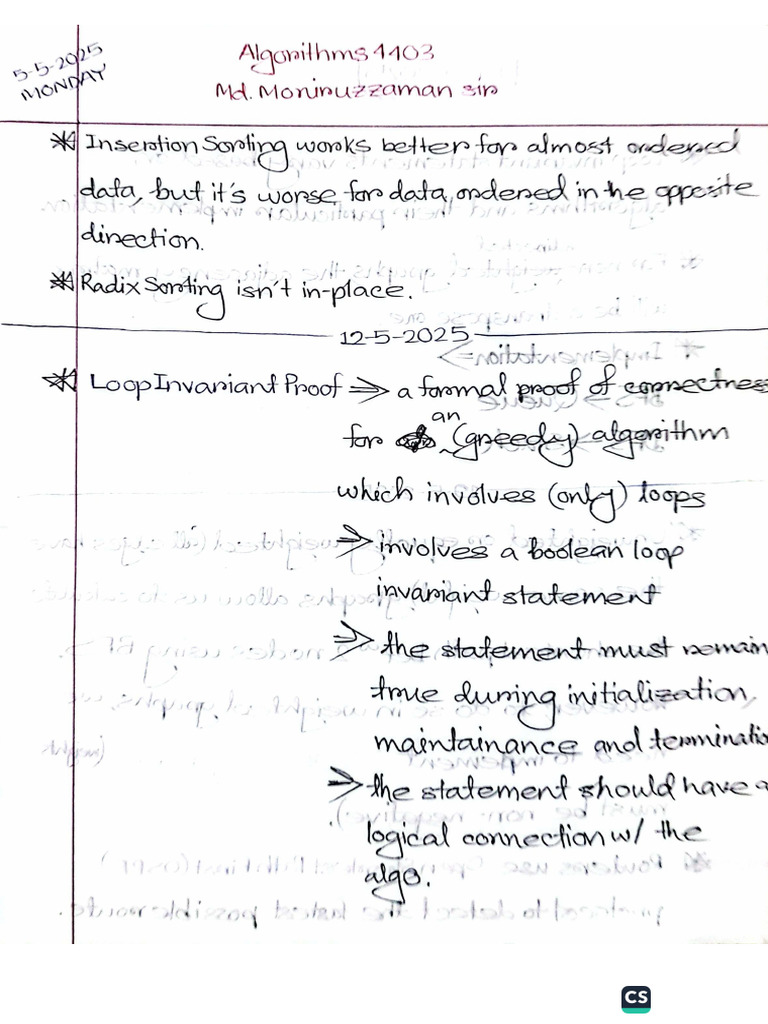 5-5-2025
MONDAY
Algorithms 1103
Md. Moniruzzaman sir
* Insertion Sorting works better for almost ordered
data, but it's worse for data ordered in the opposite
direction.
* Radix Sorting isn't in-place.
12-5-2025
* Loop Invariant Proof ⇒ a formal proof of correctness
an
for (greedy) algorithm
which involves (only) loops
⇒ involves a boolean loop
invariant statement
⇒ the statement must remain
true during initialization,
maintainance and terminatio
⇒ the statement should have a
logical connection w/ the
algo.
CS